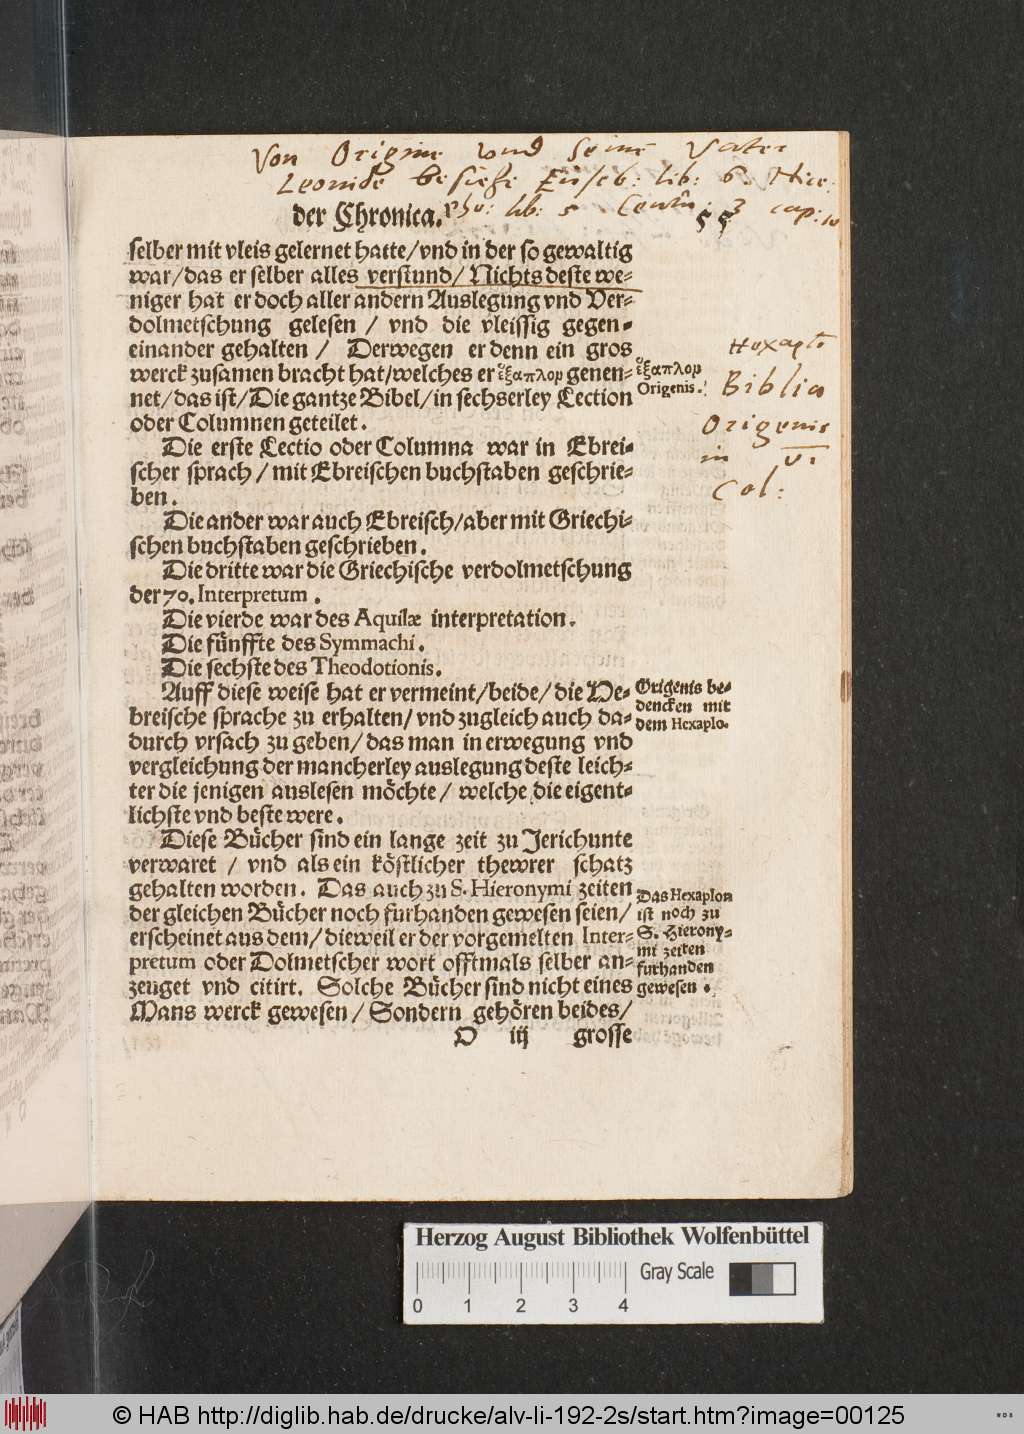 Von Origine vnd seinē Vater
Leonide besiehe Euseb: lib: 6. Nice:
pho: lib: 5 Centu: 3 cap: 10
der Chronica. 55
selber mit vleis gelernet hatte/vnd in der so gewaltig
war/das er selber alles verstund/Nichts deste we-
niger hat er doch aller andern Auslegung vnd Ver-
dolmetschung gelesen / vnd die vleissig gegen-
einander gehalten / Derwegen er denn ein gros
werck zusamen bracht hat/welches er ἑξαπλον genen-
net/das ist/Die gantze Bibel/in sechserley Lection
oder Columnen geteilet.
ἑξαπλον
Origenis.
Hexapl
Biblia
Origenis
in VI
Col:
Die erste Lectio oder Columna war in Ebrei-
scher sprach / mit Ebreischen buchstaben geschrie-
ben.
Die ander war auch Ebreisch/aber mit Griechi-
schen buchstaben geschrieben.
Die dritte war die Griechische verdolmetschung
der 70. Interpretum.
Die vierde war des Aquilæ interpretation.
Die fünffte des Symmachi.
Die sechste des Theodotionis.
Auff diese weise hat er vermeint/beide/die He-
breische sprache zu erhalten/vnd zugleich auch da-
durch vrsach zu geben/das man in erwegung vnd
vergleichung der mancherley auslegung deste leich-
ter die jenigen auslesen möchte / welche die eigent-
lichste vnd beste were.
Origenis be-
dencken mit
dem Hexaplo.
Diese Bücher sind ein lange zeit zu Jerichunte
verwaret / vnd als ein köstlicher thewrer schatz
gehalten worden. Das auch zu S. Hieronymi zeiten
der gleichen Bücher noch furhanden gewesen seien/
erscheinet aus dem/dieweil er der vorgemelten Inter-
pretum oder Dolmetscher wort offtmals selber an-
zeuget vnd citirt. Solche Bücher sind nicht eines
Mans werck gewesen / Sondern gehören beides/
Das Hexaplon
ist noch zu
S. Hierony-
mi zeiten
furhanden
gewesen.
O iij grosse
Herzog August Bibliothek Wolfenbüttel
0 1 2 3 4
Gray Scale
© HAB http://diglib.hab.de/drucke/alv-li-192-2s/start.htm?image=00125